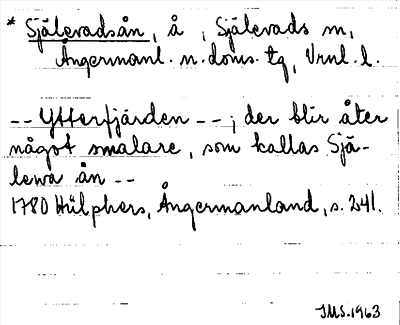 * Själevadsån, å, Själevads m,
Ångermanl. n. doms. tg, Vrnl. l.
-- Ytterfjärden --, der blir åter
något smalare, som kallas Sjä-
lewa ån --
1780 Hülphers, Ångermanland, s. 241.
JMS. 1963